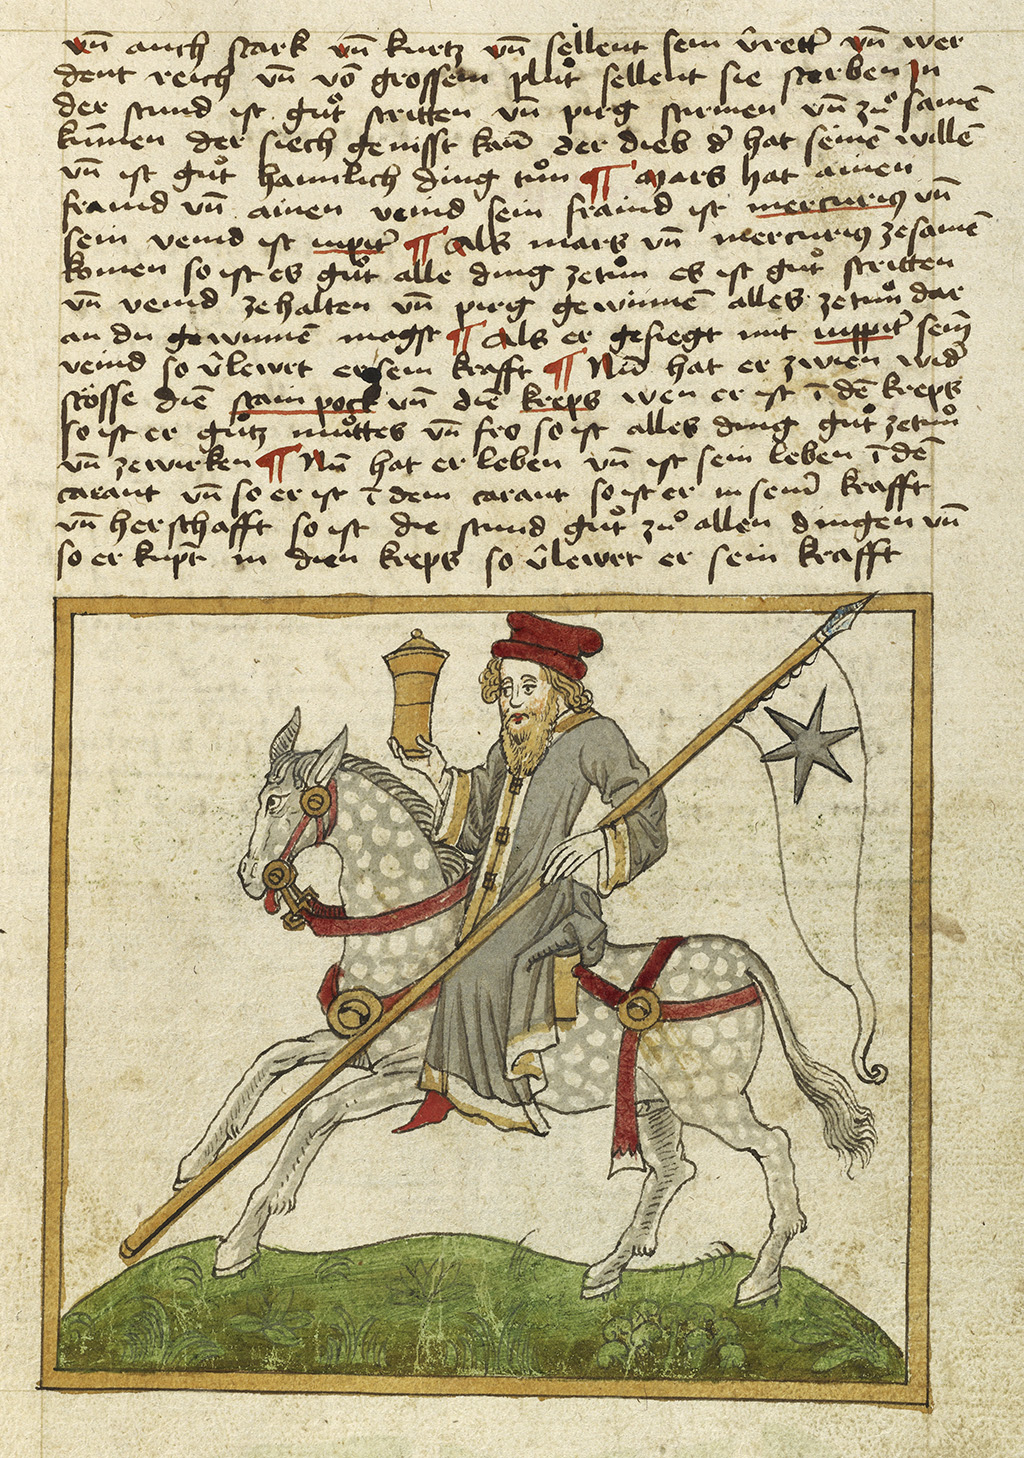 vn̄ auch stark vn̄ kurtz vn̄ sellent sein v̄rettr̄ vn̄ wer
dent reich vn̄ vō grossem pluͦt sellent sie sterben In
der stund ist guͦt stritten vn̄ pirg stirmen vn̄ zuͦ samē
kūmen der siech genisst kaū der dieb dr̄ hat seinē willē
vn̄ ist guͦt haimlich ding tuͦn ¶ Mars hat ainen
fraind vn̄ ainen veind sein fraind ist mercurius vn̄
sein veind ist iupitr̄ ¶ Als mars vn̄ mercurius zesamē
komen so ist es guͦt alle ding zetuͦn es ist guͦt stritten
vn̄ veind zehalten vn̄ pirg gewinnē alles zetuͦn dar
an du gewinnē magst ¶ Als er gesiegt mit iuppitr̄ seim̄
veind so v̄lewrt er sein krafft ¶ Nū hat er zwien widr̄
stösse diē stain pock vn̄ diē kreps wen er ist ī dē kreps
so ist er guͦtz muͦttes vn̄ fro so ist alles ding guͦt zetuͦn
vn̄ zewirken ¶ Nū hat er leben vn̄ ist sein leben ī dē
tarant vn̄ so er ist ī dem tarant so ist er in seinr̄ krafft
vn̄ herschafft so ist die stund guͦt zuͦ allen dingen vn̄
so er kupt̄ in dien kreps so v̄lewrt er sein krafft